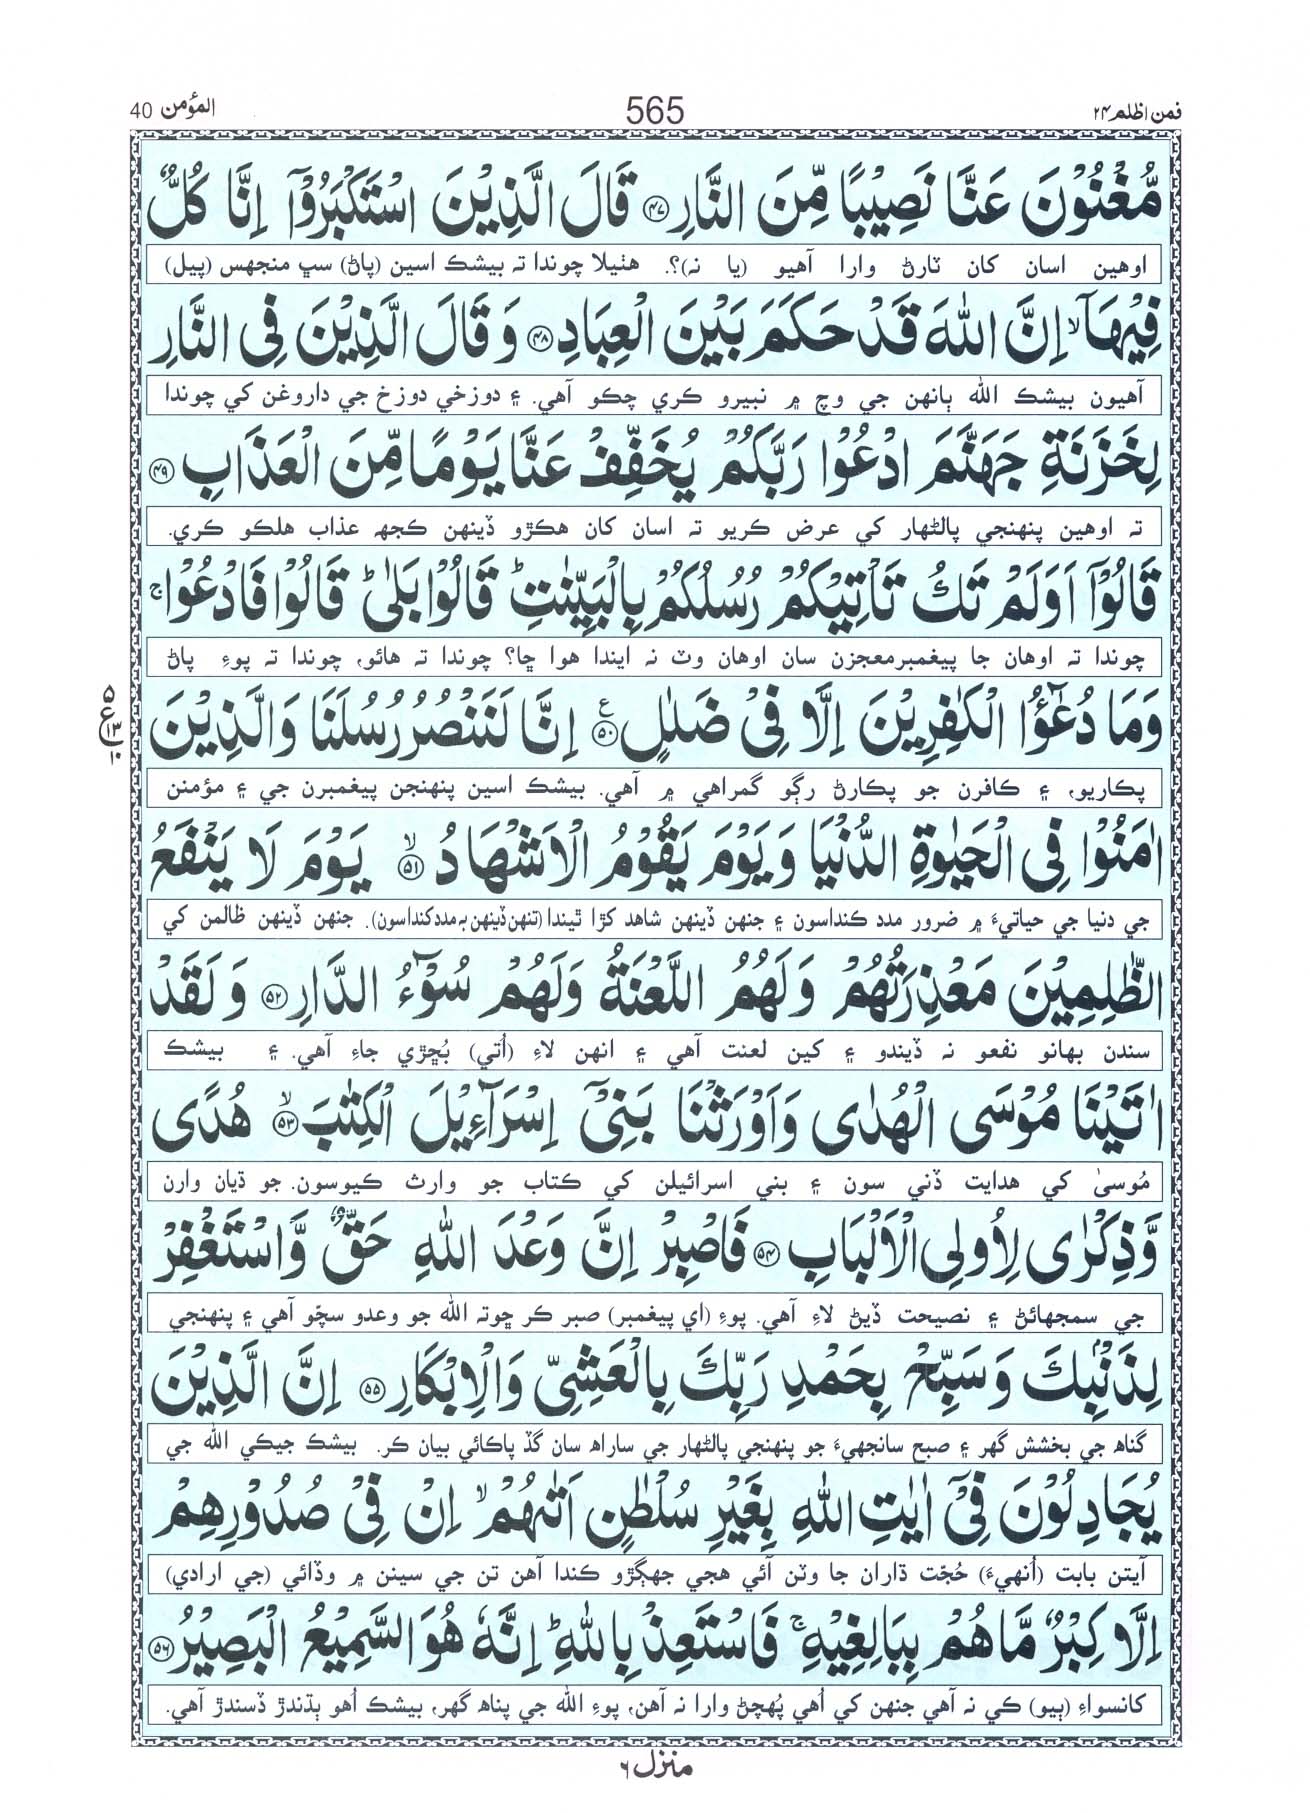 فمن اظلم ۲۴
565
المؤمن 40
مُّغْنُوْنَ عَنَّا نَصِيْبًا مِّنَ النَّارِ ﴿۴۷﴾ قَالَ الَّذِيْنَ اسْتَكْبَرُوْٓا اِنَّا كُلٌّ
اوهين اسان کان ٽارڻ وارا آهيو (يا نہ)؟. هٺيلا چوندا تہ بيشڪ اسين (پاڻ) سڀ منجهس (پيل)
فِيْهَآ ۙ اِنَّ اللّٰهَ قَدْ حَكَمَ بَيْنَ الْعِبَادِ ﴿۴۸﴾ وَ قَالَ الَّذِيْنَ فِى النَّارِ
آهيون بيشڪ الله ٻانهن جي وچ ۾ نبيرو ڪري چڪو آهي. ۽ دوزخي دوزخ جي داروغن کي چوندا
لِخَزَنَةِ جَهَنَّمَ ادْعُوْا رَبَّكُمْ يُخَفِّفْ عَنَّا يَوْمًا مِّنَ الْعَذَابِ ﴿۴۹﴾
تہ اوهين پنهنجي پالڻهار کي عرض ڪريو تہ اسان کان هڪڙو ڏينهن ڪجهہ عذاب هلڪو ڪري.
قَالُوْٓا اَوَلَمْ تَكُ تَاْتِيْكُمْ رُسُلُكُمْ بِالْبَيِّنٰتِ ؕ قَالُوْا بَلٰى ؕ قَالُوْا فَادْعُوْا ۚ
چوندا تہ اوهان جا پيغمبر معجزن سان اوهان وٽ نہ ايندا هوا ڇا؟ چوندا تہ هائو، چوندا تہ پوءِ پاڻ
وَمَا دُعٰٓؤُا الْكٰفِرِيْنَ اِلَّا فِيْ ضَلٰلٍ ﴿۵۰﴾ ع اِنَّا لَنَنْصُرُ رُسُلَنَا وَالَّذِيْنَ
۵ ع ۱۳ ۱۰
پڪاريو، ۽ ڪافرن جو پڪارڻ رڳو گمراهي ۾ آهي. بيشڪ اسين پنهنجن پيغمبرن جي ۽ مؤمنن
اٰمَنُوْا فِى الْحَيٰوةِ الدُّنْيَا وَيَوْمَ يَقُوْمُ الْاَشْهَادُ ﴿۵۱﴾ ۙ يَوْمَ لَا يَنْفَعُ
جي دنيا جي حياتيءَ ۾ ضرور مدد ڪنداسون ۽ جنهن ڏينهن شاهد کڙا ٿيندا (تنهن ڏينهن بہ مدد ڪنداسون). جنهن ڏينهن ظالمن کي
الظّٰلِمِيْنَ مَعْذِرَتُهُمْ وَلَهُمُ اللَّعْنَةُ وَلَهُمْ سُوْٓءُ الدَّارِ ﴿۵۲﴾ وَلَقَدْ
سندن بهانو نفعو نہ ڏيندو ۽ کين لعنت آهي ۽ انهن لاءِ (اُتي) بُڇڙي جاءِ آهي. ۽ بيشڪ
اٰتَيْنَا مُوْسَى الْهُدٰى وَاَوْرَثْنَا بَنِيْٓ اِسْرَآءِيْلَ الْكِتٰبَ ﴿۵۳﴾ ۙ هُدًى
مُوسىٰ کي هدايت ڏني سون ۽ بني اسرائيلن کي ڪتاب جو وارث ڪيوسون. جو ڌيان وارن
وَّذِكْرٰى لِاُولِى الْاَلْبَابِ ﴿۵۴﴾ فَاصْبِرْ اِنَّ وَعْدَ اللّٰهِ حَقٌّ وَّاسْتَغْفِرْ
جي سمجهائڻ ۽ نصيحت ڏيڻ لاءِ آهي. پوءِ (اي پيغمبر) صبر ڪر ڇوتہ الله جو وعدو سچّو آهي ۽ پنهنجي
لِذَنْۢبِكَ وَسَبِّحْ بِحَمْدِ رَبِّكَ بِالْعَشِيِّ وَالْاِبْكَارِ ﴿۵۵﴾ اِنَّ الَّذِيْنَ
گناهہ جي بخشش گهر ۽ صبح سانجهيءَ جو پنهنجي پالڻهار جي ساراهہ سان گڏ پاڪائي بيان ڪر. بيشڪ جيڪي الله جي
يُجَادِلُوْنَ فِيْٓ اٰيٰتِ اللّٰهِ بِغَيْرِ سُلْطٰنٍ اَتٰىهُمْ ۙ اِنْ فِيْ صُدُوْرِهِمْ
آيتن بابت (اُنهيءَ) حُجّت ڌاران جا وٽن آئي هجي جهڳڙو ڪندا آهن تن جي سينن ۾ وڏائي (جي ارادي)
اِلَّا كِبْرٌ مَّا هُمْ بِبَالِغِيْهِ ۚ فَاسْتَعِذْ بِاللّٰهِ ؕ اِنَّهٗ هُوَ السَّمِيْعُ الْبَصِيْرُ ﴿۵۶﴾
کانسواءِ (ٻيو) ڪي نہ آهي جنهن کي اُهي پُهچڻ وارا نہ آهن، پوءِ الله جي پناهہ گهر، بيشڪ اُهو ٻڌندڙ ڏسندڙ آهي.
منزل ۶